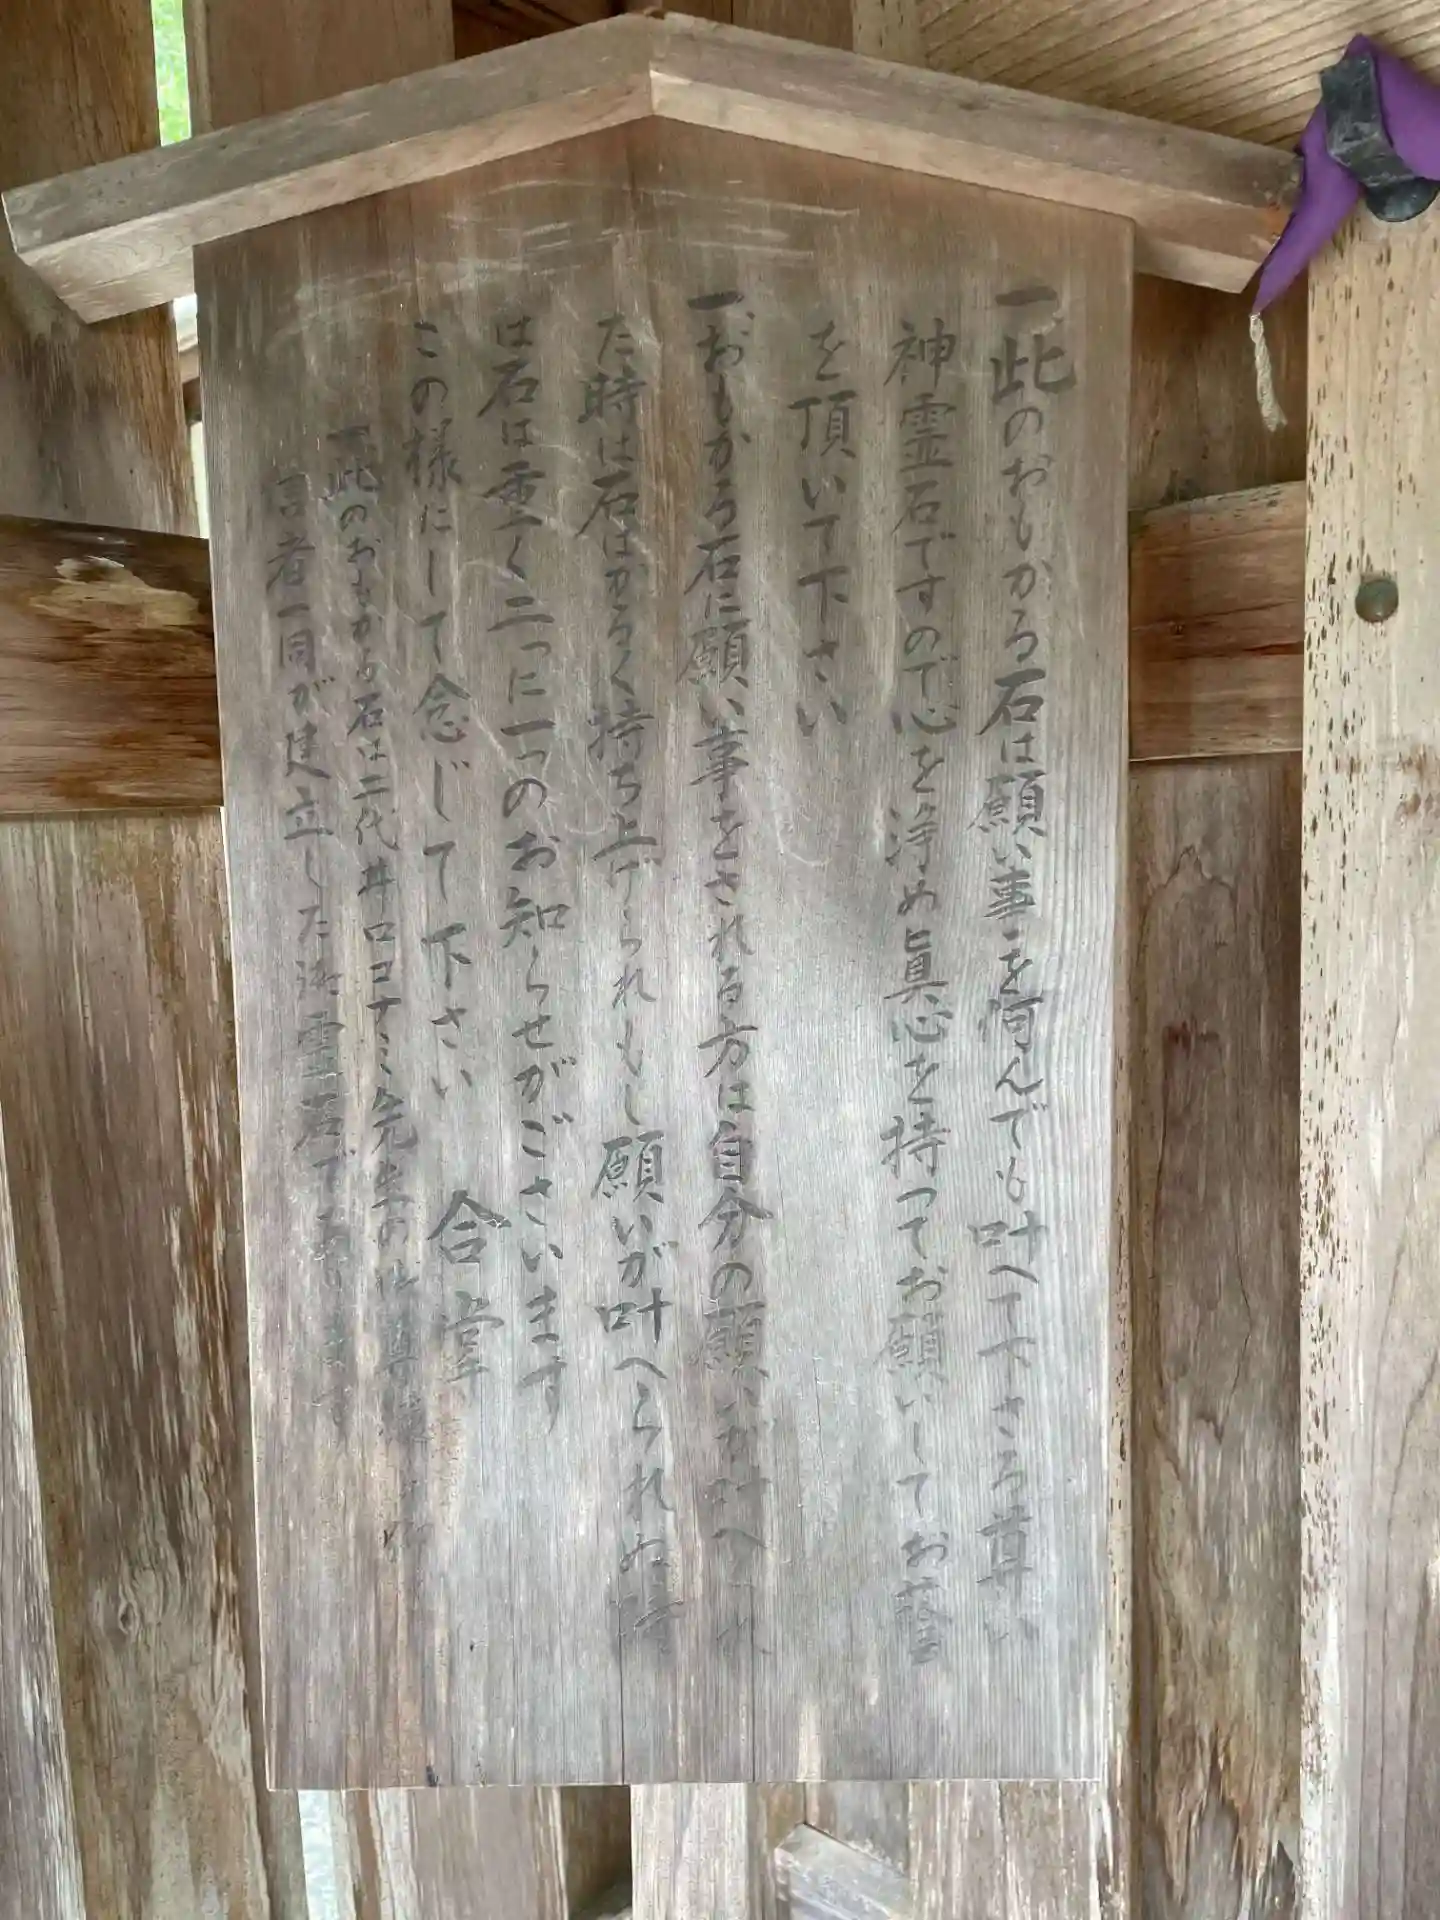 一、此のおもかる石は願い事を何んでも叶へて下さる尊い
神霊石ですので心を浄め眞心を持つてお願いしてお蔭
を頂いて下さい
一、おもかる石に願い事をされる方は自分の願いが叶へられ
た時は石はかるく持ち上げられもし願いが叶へられぬ時
は石は重く二つに一つのお知らせがございます
この様にして念じて下さい 合掌
一、此のおもかる石は二代井口コナミ先生の
言者一同が建立した 霊石であります